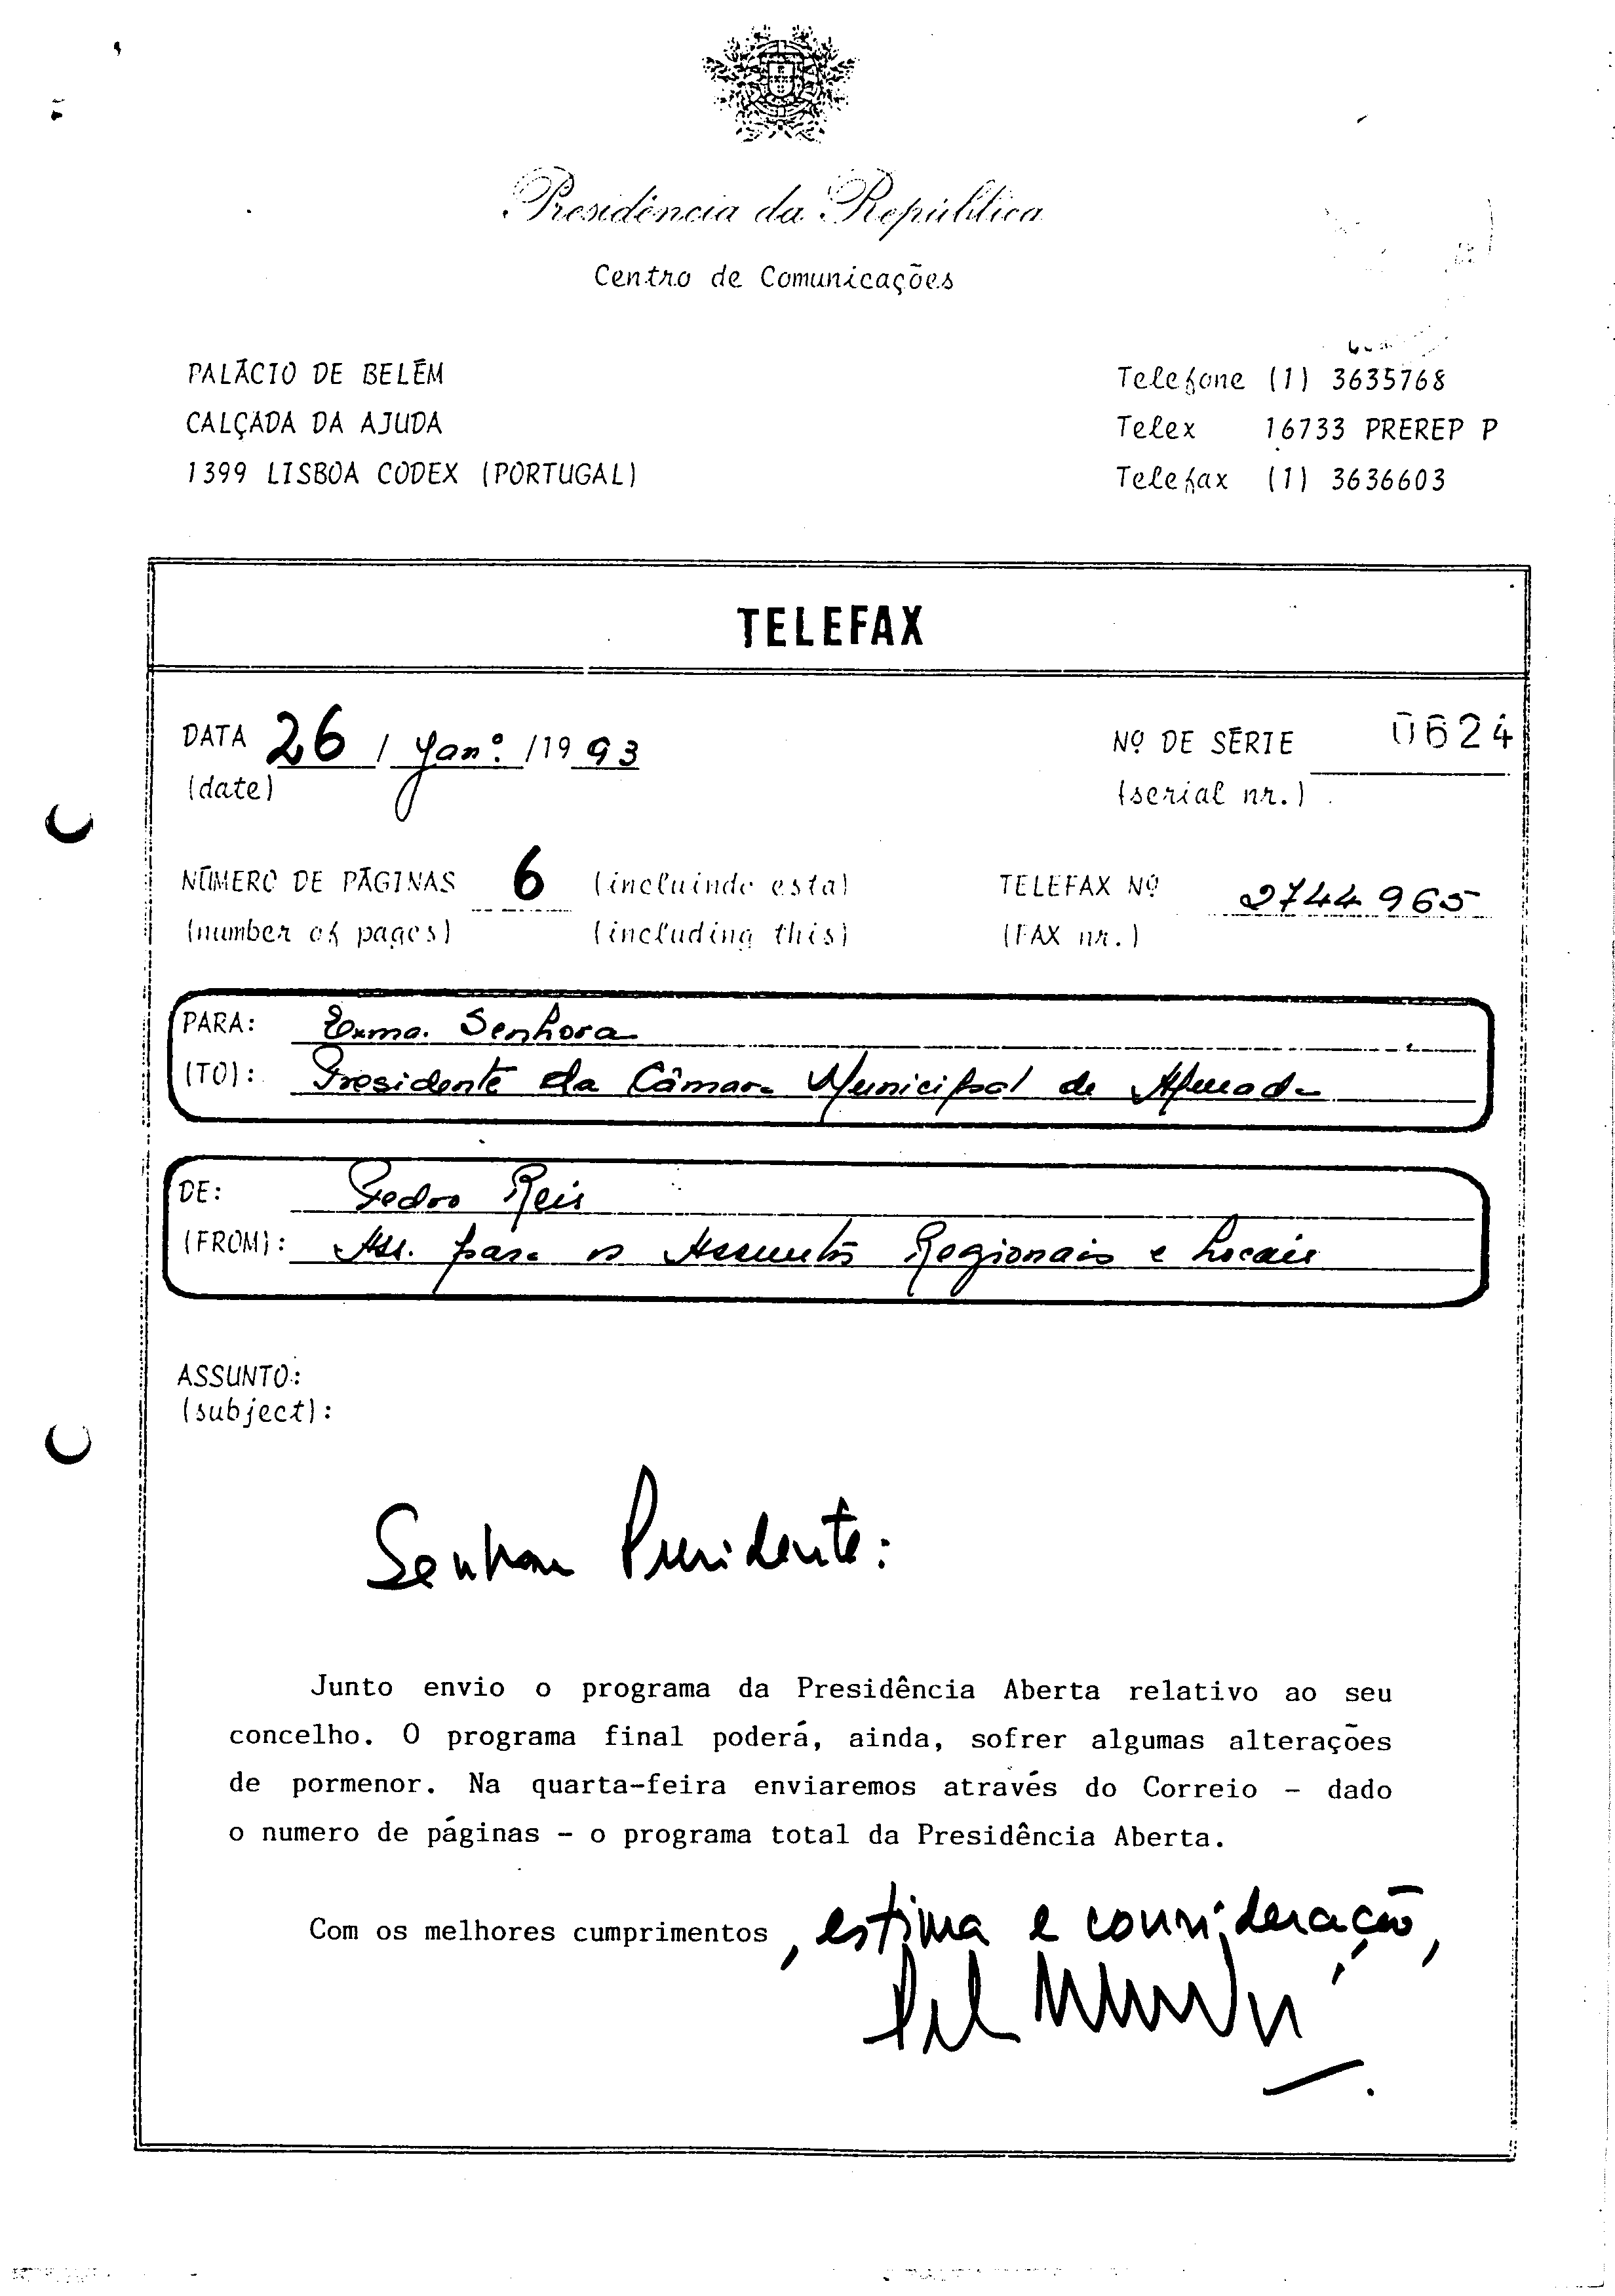 Presidência da República
Centro de Comunicações
PALÁCIO DE BELÉM
CALÇADA DA AJUDA
1399 LISBOA CODEX (PORTUGAL)
Telefone (1) 3635768
Telex 16733 PREREP P
Telefax (1) 3636603
TELEFAX
DATA 26 / Janº. /19 93
(date)
Nº DE SÉRIE 0624
(serial nr.)
NÚMERO DE PÁGINAS 6 (incluindo esta)
(number of pages) (including this)
TELEFAX Nº 2744965
(FAX nr.)
PARA: Exma. Senhora
(TO): Presidente da Câmara Municipal de Almada
DE: Pedro Reis
(FROM): Ass. para os Assuntos Regionais e Locais
ASSUNTO:
(subject):
Senhora Presidente:
Junto envio o programa da Presidência Aberta relativo ao seu
concelho. O programa final poderá, ainda, sofrer algumas alterações
de pormenor. Na quarta-feira enviaremos através do Correio - dado
o numero de páginas - o programa total da Presidência Aberta.
Com os melhores cumprimentos, estima e consideração,